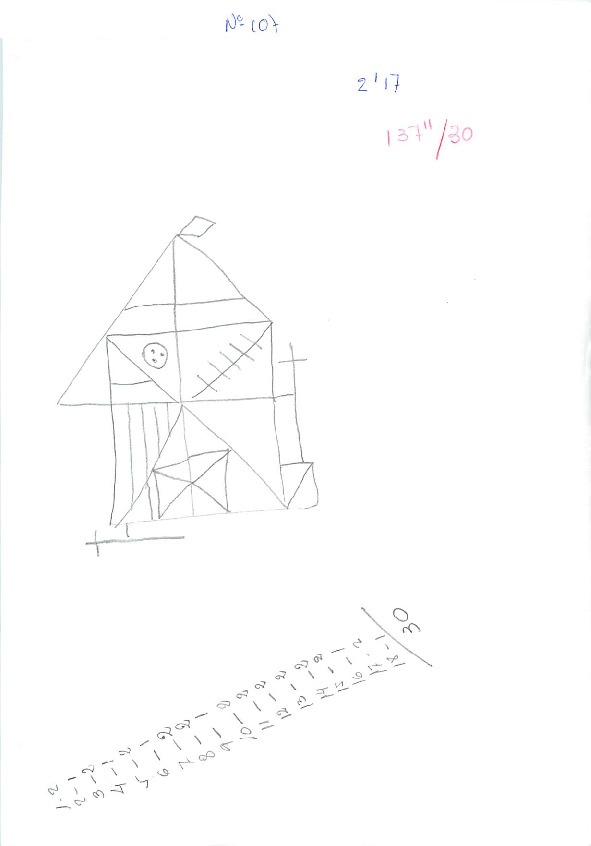 Nº 107
2'17
137"/30
1-2
2-1
3-2
4-1
5-2
6-1
7-2
8-2
9-1
10-2
11-2
12-2
13-2
14-2
15-2
16-1
17-2
18-1
30